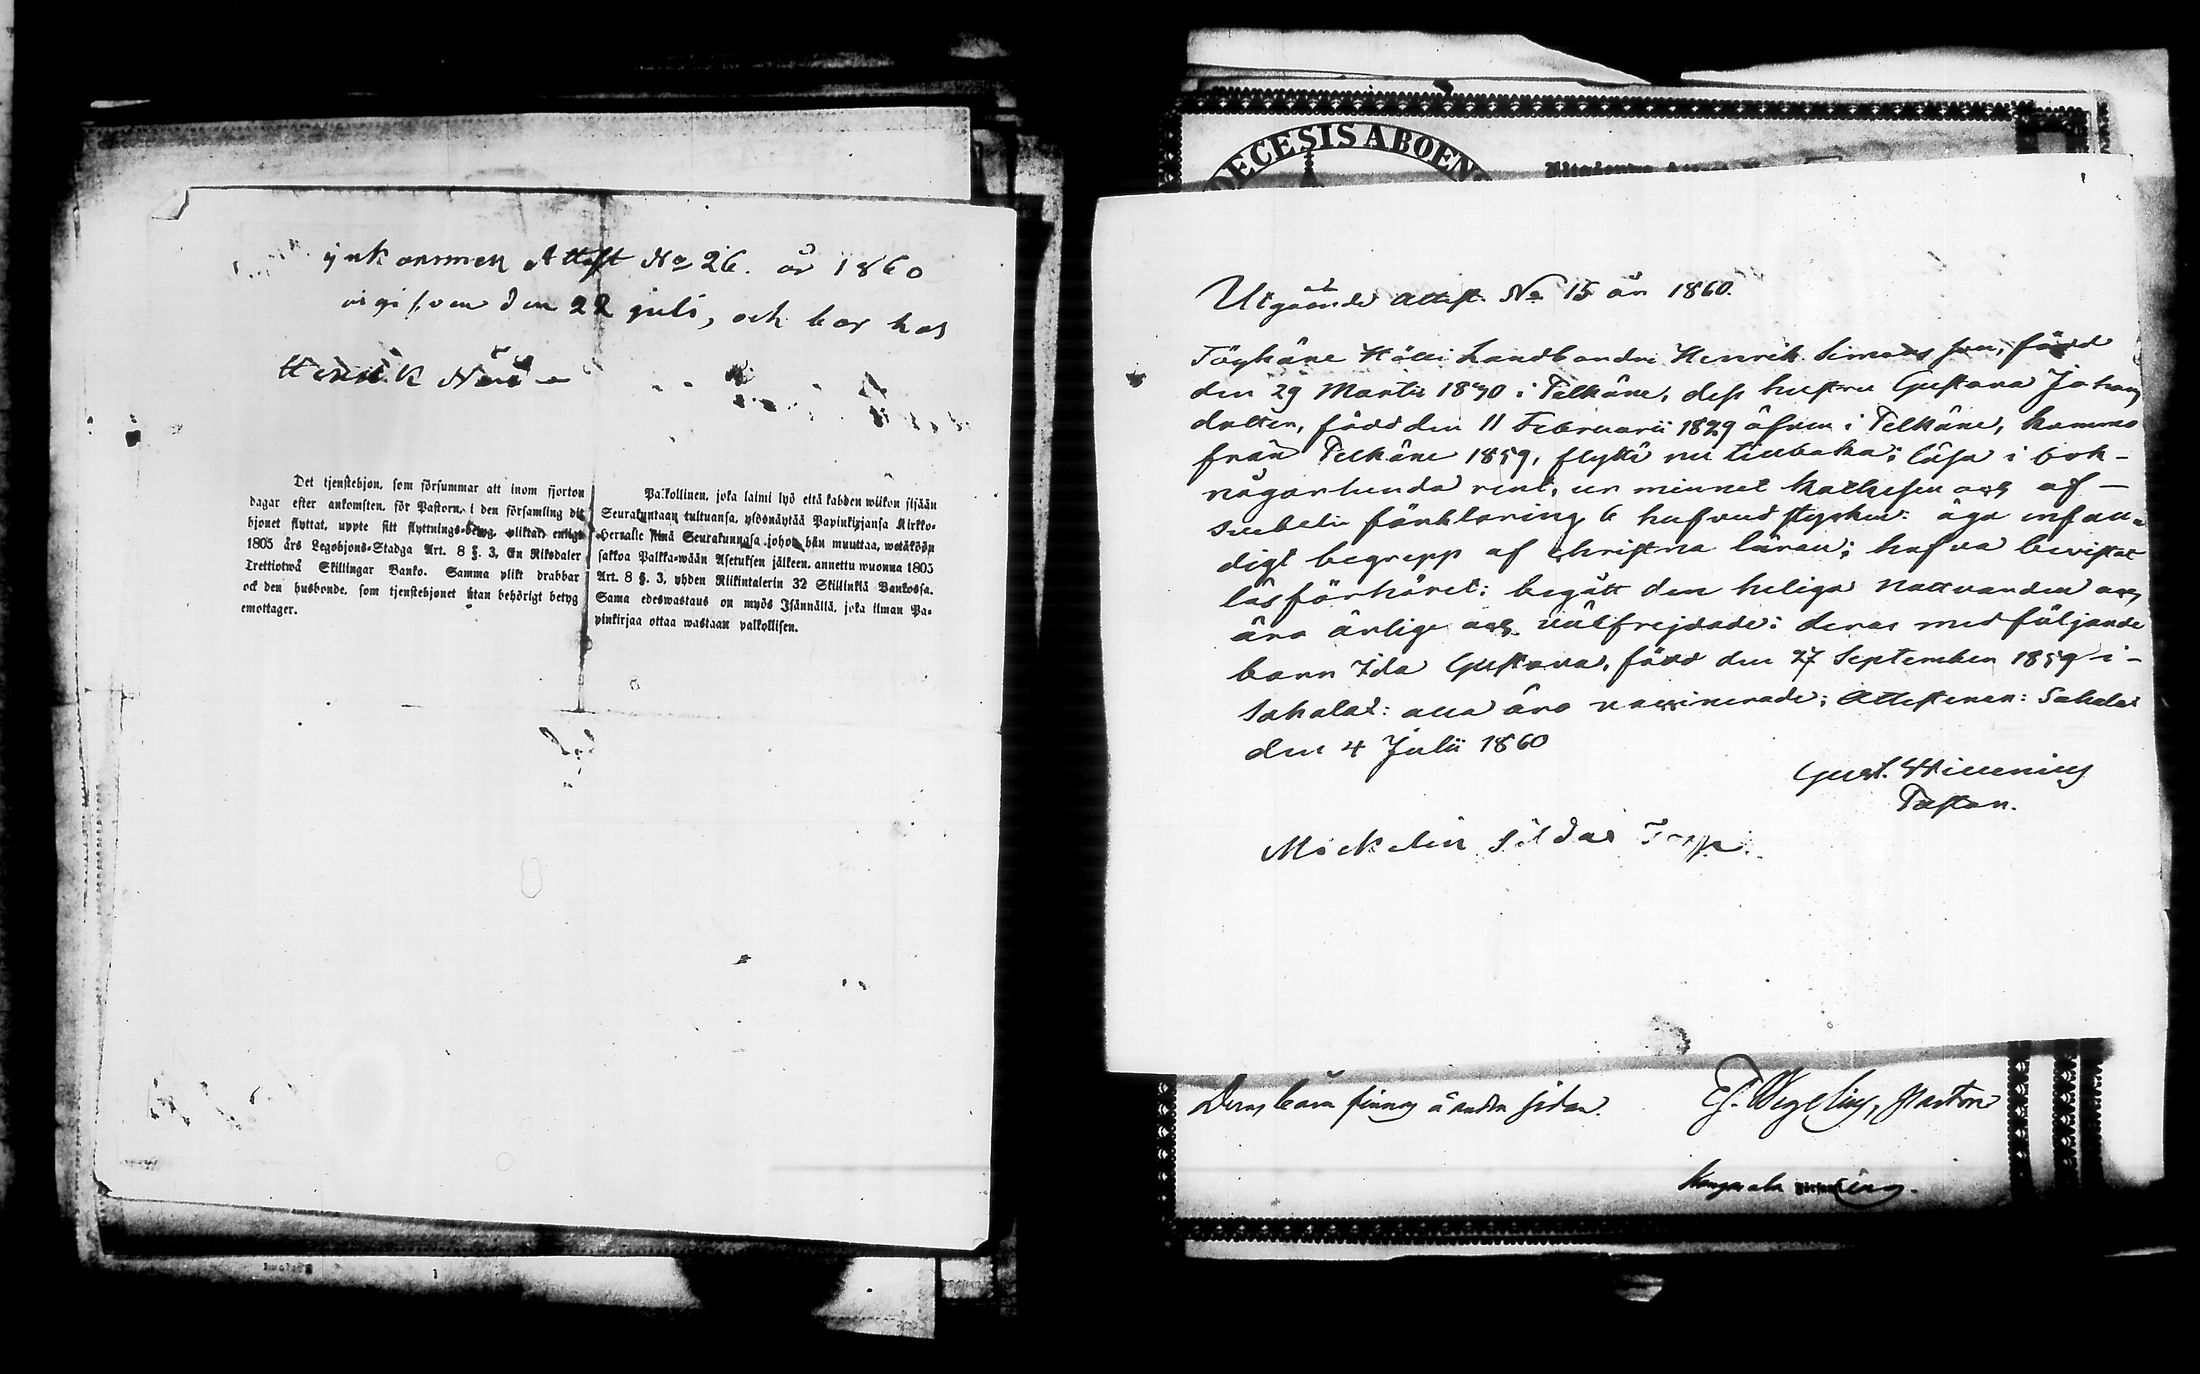 ynkommen Attest No 26. år 1860
uigifven den 22 juli, och bor hos
Henrik
Det tjenstehjon, som försummar att inom fjorton
dagar efter ankomsten, för Pastorn, i den församling dit
hjonet flyttat, uppte sitt flyttnings-betyg, pliktar, enligt
1805 års Legohjons-Stadga Art. 8 §. 3, En Riksdaler
Trettiotwå Skillingar Banko. Samma plikt drabbar
ock den husbonde, som tjenstehjonet utan behörigt betyg
emottager.
Palkollinen, joka laimi lyö että kahden wiikon sisään
Seurakuntaan tultuansa, ylösnäytää Papinkirjansa Kirkko-
Herralle siinä Seurakunnasa johon hän muuttaa, wetäköön
sakkoa Palkka-wään Asetuksen jälkeen, annettu wuonna 1805
Art. 8 §. 3, yhden Riikintalerin 32 Skillinkiä Bankossa.
Sama edeswastaus on myös Isännällä, joka ilman Pa-
pinkirjaa ottaa wastaan palkollisen.
DECESIS ABOEN
Utgående Attest. No 15 år 1860.
Töyhäne Hölli Landbonden Henrik Simons son, född
den 29 Martii 1830 i Telkäne, dess hustru Gustava Johans
dotter, född den 11 Februarii 1829 äfven i Telkäne, komne
från Telkäne 1859, flytta nu tillbaka; läsa i bok
någorlunda rent, ur minnet kathesen och af-
svebelii förklaring 6 hufvudstycken: äga enfal-
digt begrepp af christna läran; hafva bevistat
läsförhöret; begått den heliga Nattvarden och
äro ärlige och välfrejdade: deras medföljande
barn Ida Gustava, född den 27 September 1859 i
Sahalax: alla äro vaccinerade; Attesteras: Sahalax
den 4 Julii 1860
Gust. Hillenius
Pastor.
Mickelin Sildas Torp.
Deras barn finnas å andra sidan.
Wegelius, Pastor
Kangasala